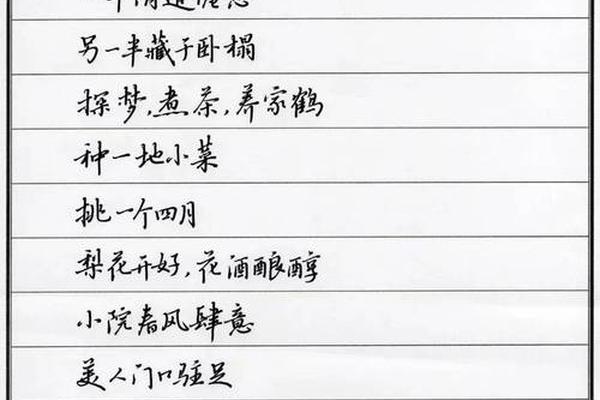 另一半藏于卧榻
探梦,煮茶,养家鹤
种一地小菜
挑一个四月
梨花开好,花酒酿醇
小院春风肆意
美人门口驻足